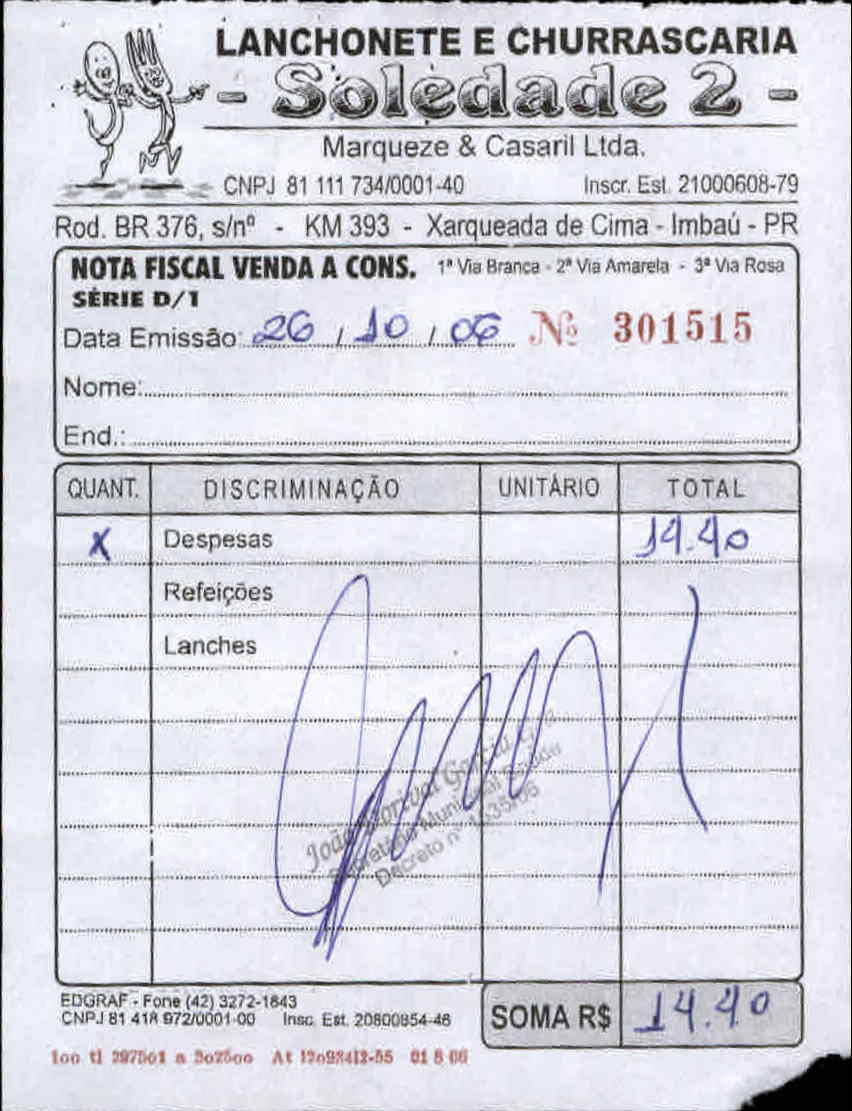 LANCHONETE E CHURRASCARIA
- Soledade 2 -
Marqueze & Casaril Ltda.
CNPJ 81 111 734/0001-40 Inscr. Est. 21000608-79
Rod. BR 376, s/nº - KM 393 - Xarqueada de Cima - Imbaú - PR
NOTA FISCAL VENDA A CONS. 1ª Via Branca - 2ª Via Amarela - 3ª Via Rosa
SÉRIE D/1
Data Emissão: 26 / 10 / 06 Nº 301515
Nome:
End.:
QUANT. DISCRIMINAÇÃO UNITÁRIO TOTAL
X Despesas 14.40
Refeições
Lanches
João Dorival Garcia
Secretário Municipal Saúde
Decreto nº
EDGRAF - Fone (42) 3272-1843
CNPJ 81 418 972/0001-00 Insc. Est. 20800854-46
SOMA R$ 14.40
100 tl 297501 a 302500